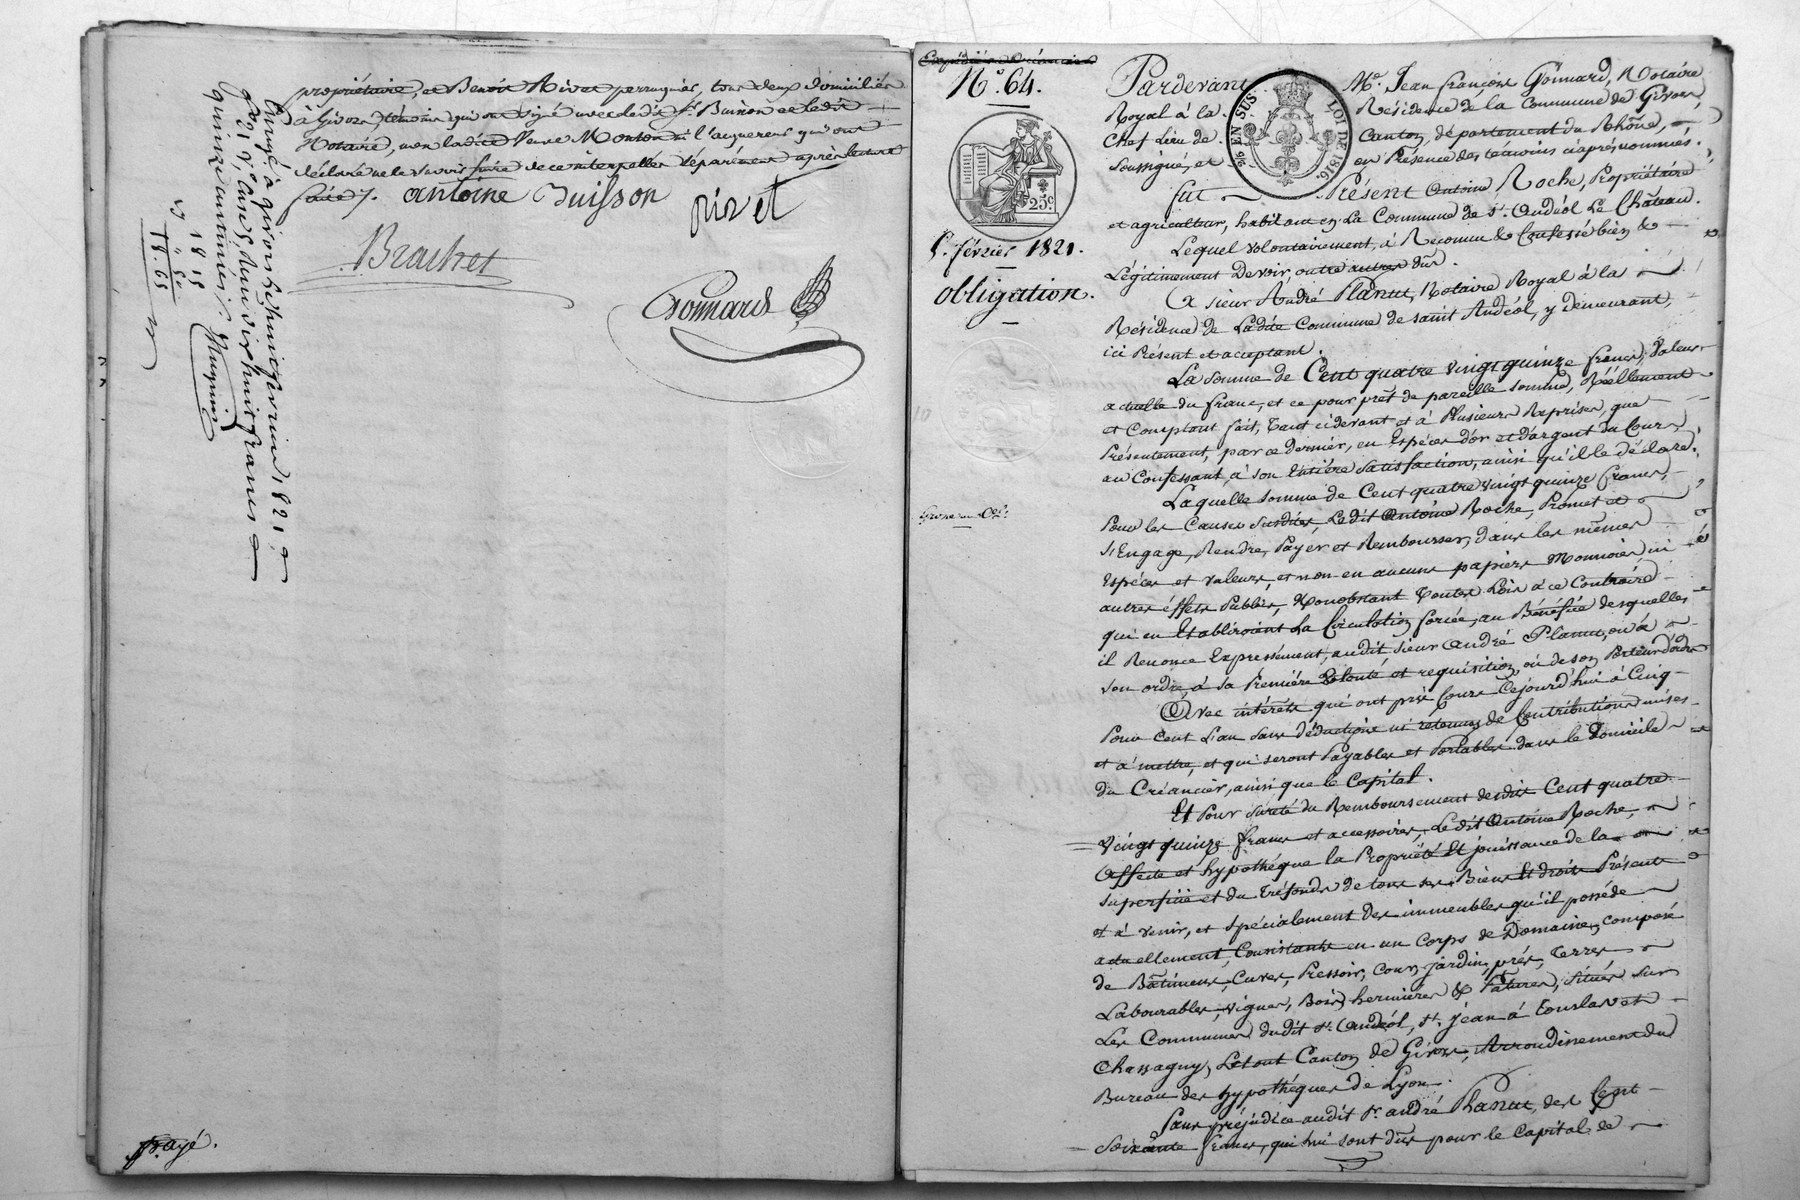 propriétaire, et Benoit Rivet perruquier, tous deux domiciliés
à Givors, témoins qui ont signé avec le dit Sr. Buisson et le dit
Notaire, non ladite Veuve Monton ni l'acquéreur qui ont
déclaré ne le savoir faire de ce interpellés séparément après lecture
faite.
antoine Buisson
rivet
Brachet
Gonnard
Enregé. à givors le huit février 1821
quinze centimes
18 15
18. 65
payé.
N.° 64.
25c
5. février 1821.
obligation.
26 EN SUS.
LOI DE 1816.
Pardevant Me. Jean françois Gonnard, Notaire
Royal à la Résidence de la Commune de Givors,
Chef Lieu de Canton, département du Rhône,
Soussigné, et en Présence des témoins ciaprès nommés.
fut Présent Antoine Roche, Propriétaire
et agriculteur, habitant en la Commune de St. Andéol Le Château.
Lequel volontairement, a Reconnu & Confessé bien &
Légitimement Devoir, outre autres dûs.
A sieur André Planut, Notaire Royal à la
Résidence de Ladite Commune de saint Andéol, y demeurant,
ici Présent et acceptant.
La somme de Cent quatre vingt quinze francs, Valeur
actuelle du franc, et ce pour prêt de pareille somme, Réellement
et Comptant fait, tant cidevant et à Plusieurs Reprises, que
Présentement, par ce dernier, en Espèces d'or et d'argent du Cours,
au Confessant, à son Entière Satisfaction, ainsi qu'il le déclare.
Laquelle somme de Cent quatre vingt quinze francs,
Pour les Causes Susdites, Ledit Antoine Roche, Promet et
s'Engage, Rendre, Payer et Rembourser, dans les mêmes
Espèces et valeurs, et non en aucuns papiers Monnoies ni
autres éffets Publics, Nonobstant toutes Lois à ce Contraire
qui en Etabliroient La Circulation forcée, au Bénéfice desquelles
il Renonce Expressément, audit sieur André Planut, ou à
son ordre, à sa Première Volonté et requisition, ou de son Porteur d'ordre
Avec intérêts qui ont pris Cours Cejourd'hui à Cinq
Pour Cent L'an sans déductions ni retenues de Contributions mises
et à mettre, et qui seront Payables et Portables dans le Domicile
du Créancier, ainsi que le Capital.
Et Pour Sureté du Remboursement desdits Cent quatre
Vingt quinze francs et accessoires, Ledit Antoine Roche,
Affecte et hypothéque la Propriété Et jouissance de la
superficie et du Tréfonds de tous ses Biens Et droits Présents
et à venir, et Spécialement des immeubles qu'il posséde
actuellement, Consistants en un Corps de Domaine, composé
de Bâtimens, Cuves, Pressoir, Cour, jardin, prés, Terres
Labourables, vignes, Bois, hermières & Pâtures, situés sur
Les Communes dudit St. Andéol, St. Jean à touslas et
Chassagny, Letout Canton de Givors, Arrondissement du
Bureau des hypothéques de Lyon.
Sans préjudice audit Sr. andré Planut, des Cent
Soixante francs, qui lui sont dûs pour le Capital de